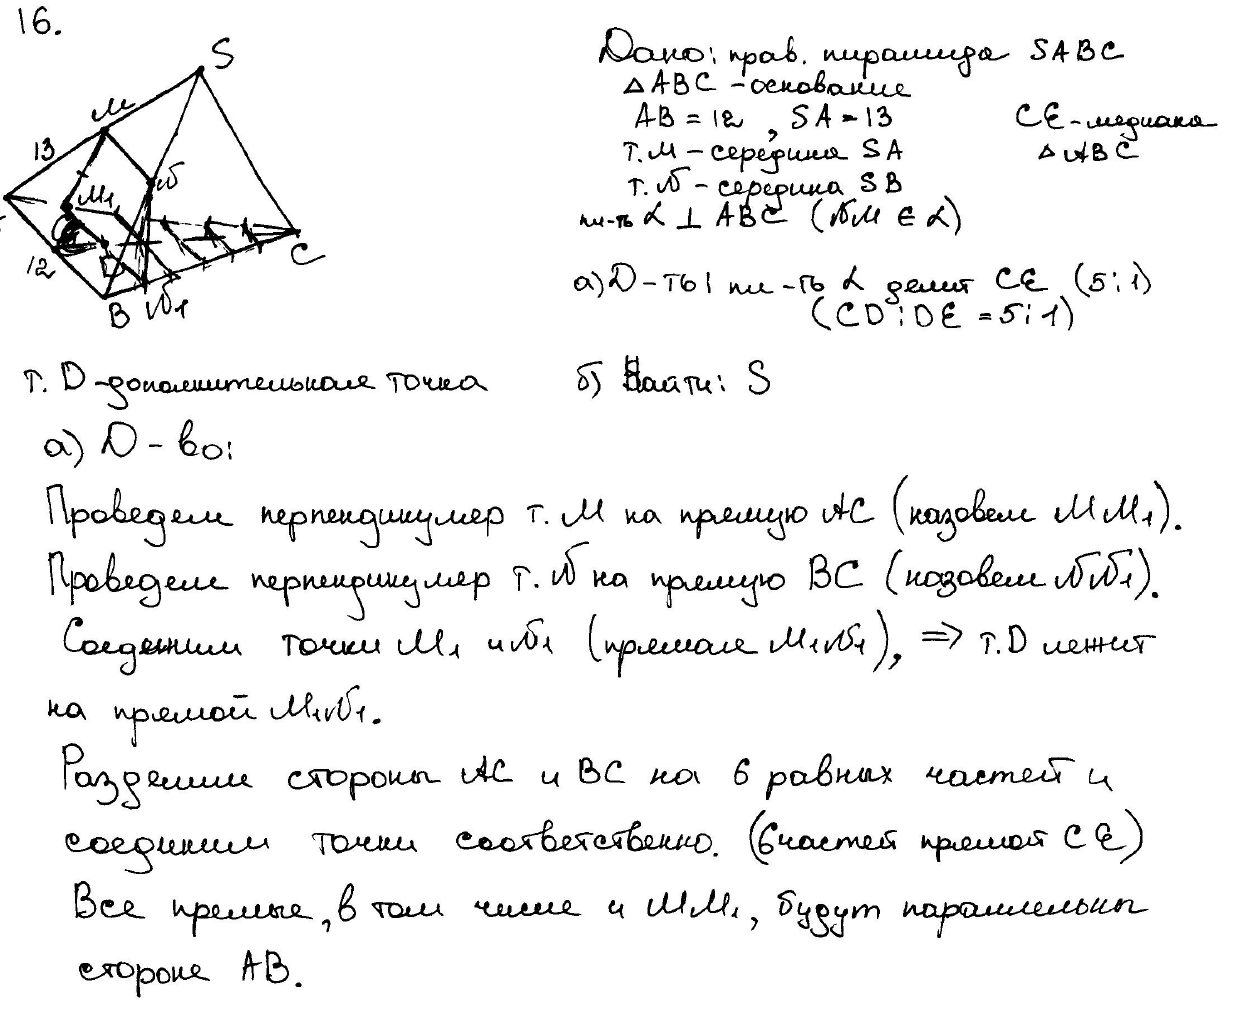 16.
S
M
13
N
M1
12
D
B
N1
C
Дано: прав. пирамида SABC
△ABC - основание
AB = 12, SA = 13
CE - медиана
△ABC
т. M - середина SA
т. N - середина SB
пл-ть α ⊥ ABC (NM ∈ α)
а) D-ть: пл-ть α делит CE (5:1)
(CD:DE = 5:1)
т. D - дополнительная точка
б) Найти: S
а) D-во:
Проведем перпендикуляр т. M на прямую AC (назовем MM1).
Проведем перпендикуляр т. N на прямую BC (назовем NN1).
Соединим точки M1 и N1 (прямая M1N1), => т. D лежит
на прямой M1N1.
Разделим стороны AC и BC на 6 равных частей и
соединим точки соответственно. (6 частей прямой CE)
Все прямые, в том числе и MM1, будут параллельны
стороне AB.